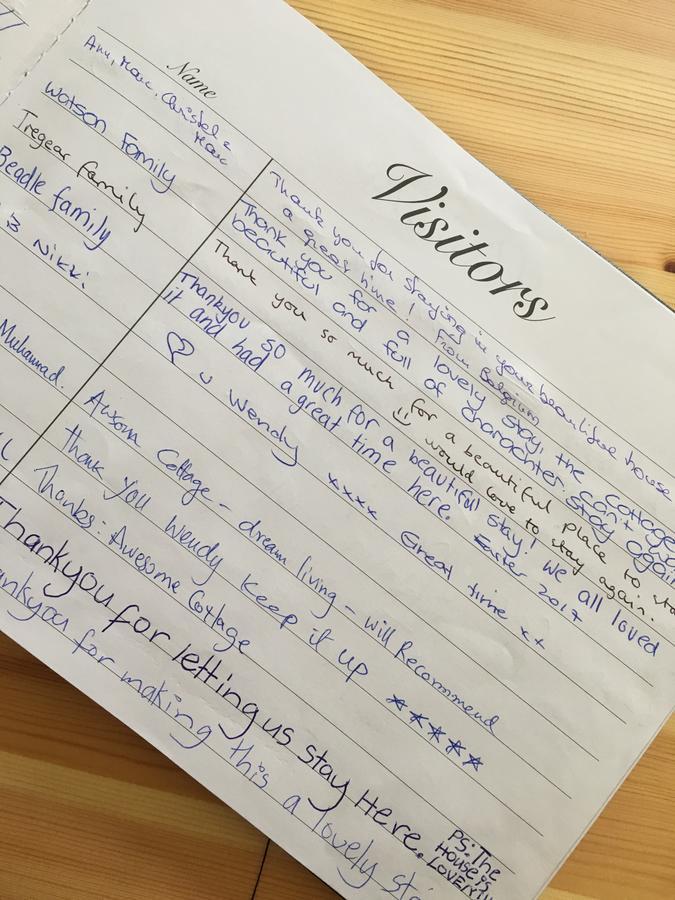 Name
Visitors
Ann, Marc, Christel &
Marc
Thank you for staying in your beautiful house
a great time! From Belgium
Watson Family
Thank you for a lovely stay, the cottage
beautiful and full of charachter. can't
stay again
Tregear family
Thank you so much for a beautiful place to
☺ would love to stay again.
Beadle family
Thankyou so much for a beautiful stay! We all loved
it and had a great time here. Easter 2017
Nikki
♡ u Wendy xxxx Great time xx
Muhammad.
Awsom Cottage - dream living - will Recommend
Thank you Wendy keep it up ★★★★★
Thanks. Awesome Cottage
Thankyou for letting us stay Here. PS: The
House is
LOVELY!!
for making this a lovely